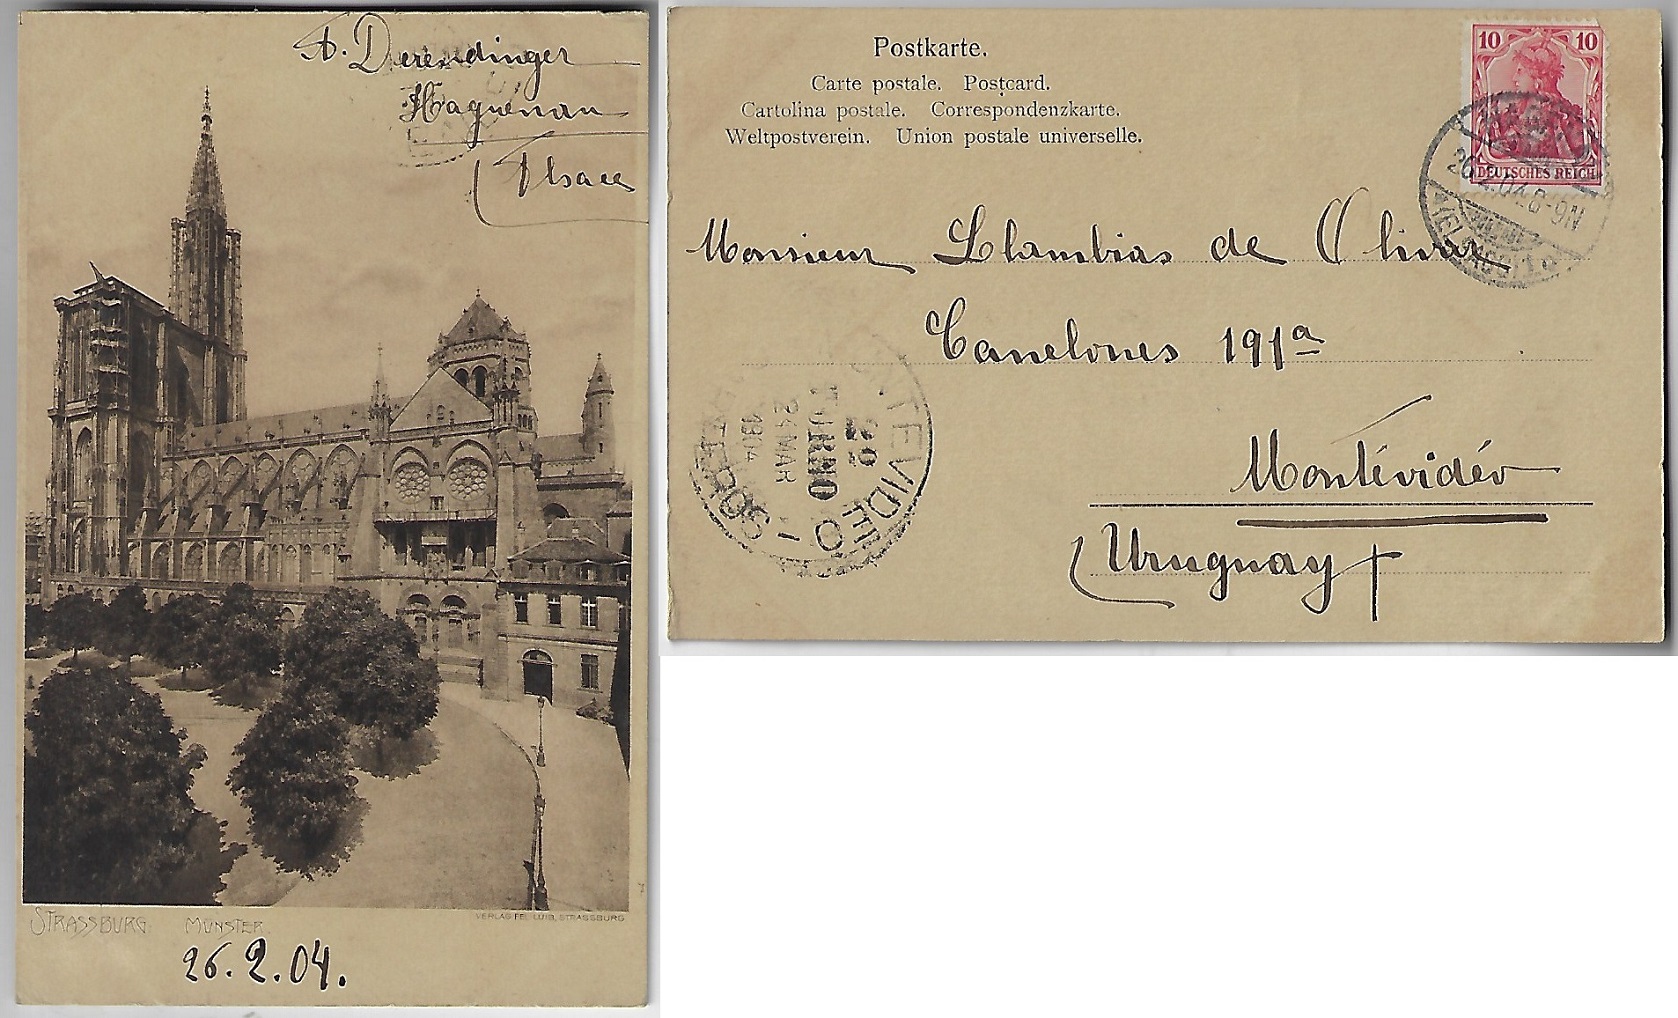 A. Derendinger
Haguenau
(Alsace
STRASSBURG MÜNSTER
VERLAG FE. LUIB, STRASSBURG
26.2.04.
Postkarte.
Carte postale. Postcard.
Cartolina postale. Correspondenzkarte.
Weltpostverein. Union postale universelle.
10 10
DEUTSCHES REICH
26.2.04.8-9N
Monsieur Llambias de Olivar
Canelones 191a
Montévidéo
(Uruguay)
MONTEVIDEO
2o
TURNO
24 MAR
1904